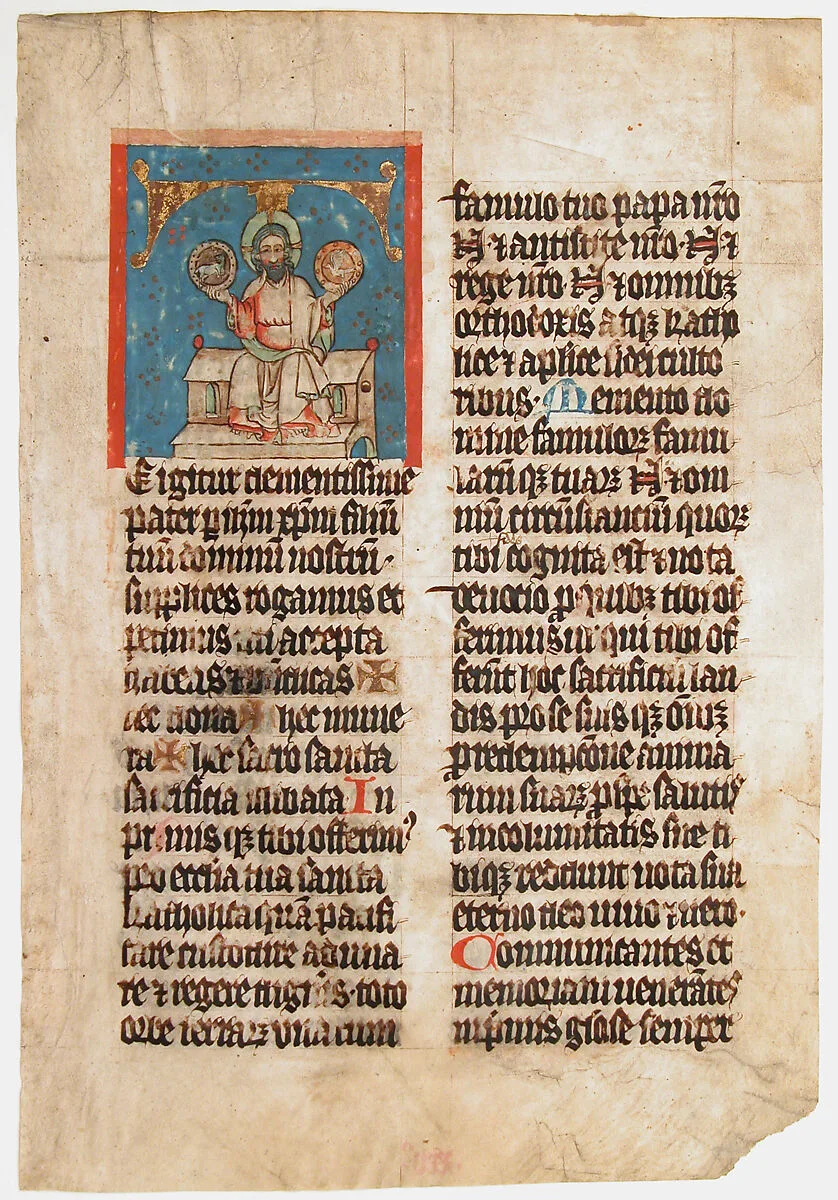 E igitur clementissime
pater p ihm xpm filiū
tuū dominū nostrū·
supplices rogamus et
petimus uti accepta
habeas ⁊ bn̄dicas ✠
hec dona ✠ hec mune
ra ✠ hec sacro sancta
sacrificia illibata In
primis qꝫ tibi offerimꝰ
pro ecclīa tua sancta
katholica quā pacifi
care custodire aduna
re ⁊ regere digneris toto
orbe terrarꝫ vna cum
famulo tuo papa nr̄o
N· ⁊ antistite nr̄o· N ⁊
rege nr̄o N ⁊ omnibꝫ
orthodoxis atqꝫ katho
lice ⁊ aplice fidei culto
ribus· Memento do
mine famulorꝫ famu
larūqꝫ tuarꝫ N ⁊ om
niū circūstanciū quorꝫ
tibi cognita est ⁊ nota
deuocio pro quibꝫ tibi of
ferimus ut qui tibi of
ferūt hoc sacrificiū lau
dis pro se suisqꝫ oīnibꝫ
pro redempcōne anima
rum suarꝫ pro spe salutis
⁊ incolumitatis sue ti
biqꝫ reddunt uota sua
eterno deo uiuo ⁊ uero·
Communicantes et
memoriam uenerātes
inprimis gl̄ose semper